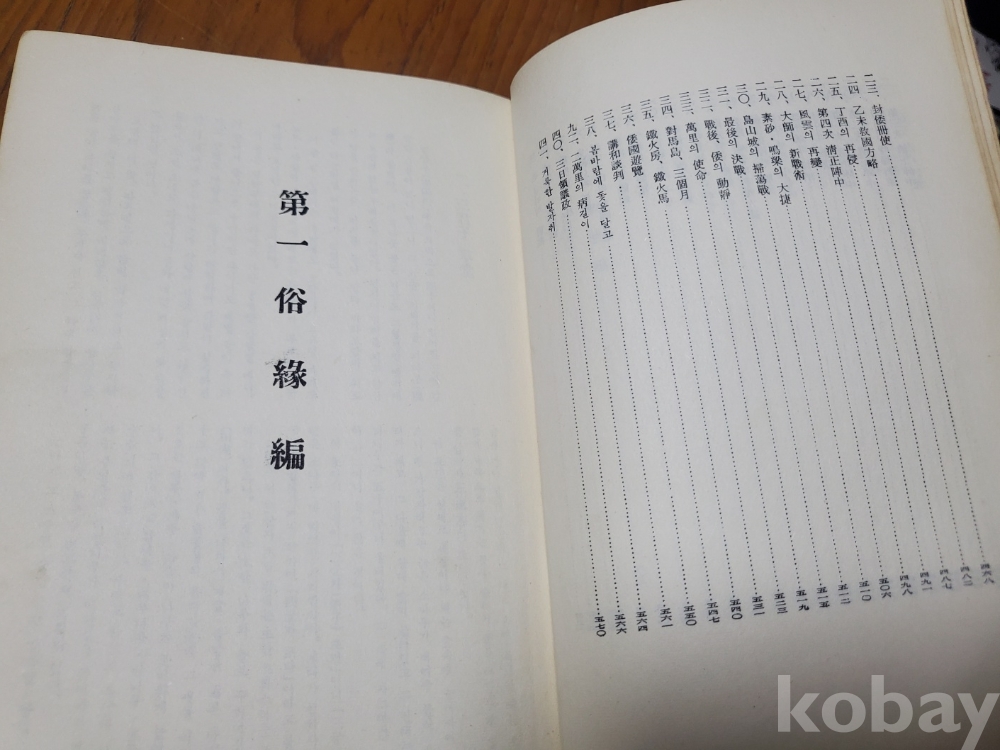 二三、封倭冊使……四六八
二四、乙未救國方略……四八二
二五、丁酉의 再侵……四八七
二六、第四次 淸正陣中……四九一
二七、風雲의 再變……四九八
二八、大師의 新戰術……五〇六
二九、素砂·鳴梁의 大捷……五一〇
三〇、島山城의 掃蕩戰……五一二
三一、最後의 決戰……五一五
三二、戰後、倭의 動靜……五一九
三三、萬里의 使命……五二三
三四、對馬島、三個月……五三一
三五、鐵火房、鐵火馬……五四〇
三六、倭國遊覽……五四七
三七、講和談判……五五〇
三八、봄바람에 돛을 달고……五六一
九二、二萬里의 病길이……五六四
四〇、三日領議政……五六六
四一、거룩한 발자취……五七〇
第一俗緣編
kobay